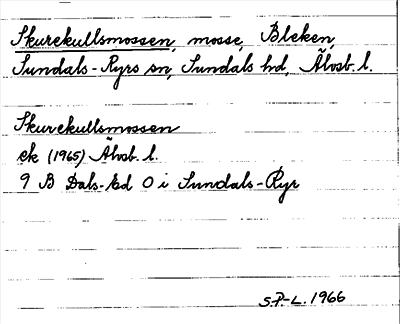 Skurekullsmossen, mosse, Bleken,
Sundals-Ryrs sn, Sundals hd, Älvsb. l.
Skurekullsmossen
ek (1965) Älvsb. l.
9 B Dals-Ed O i Sundals-Ryr
S.P-L. 1966